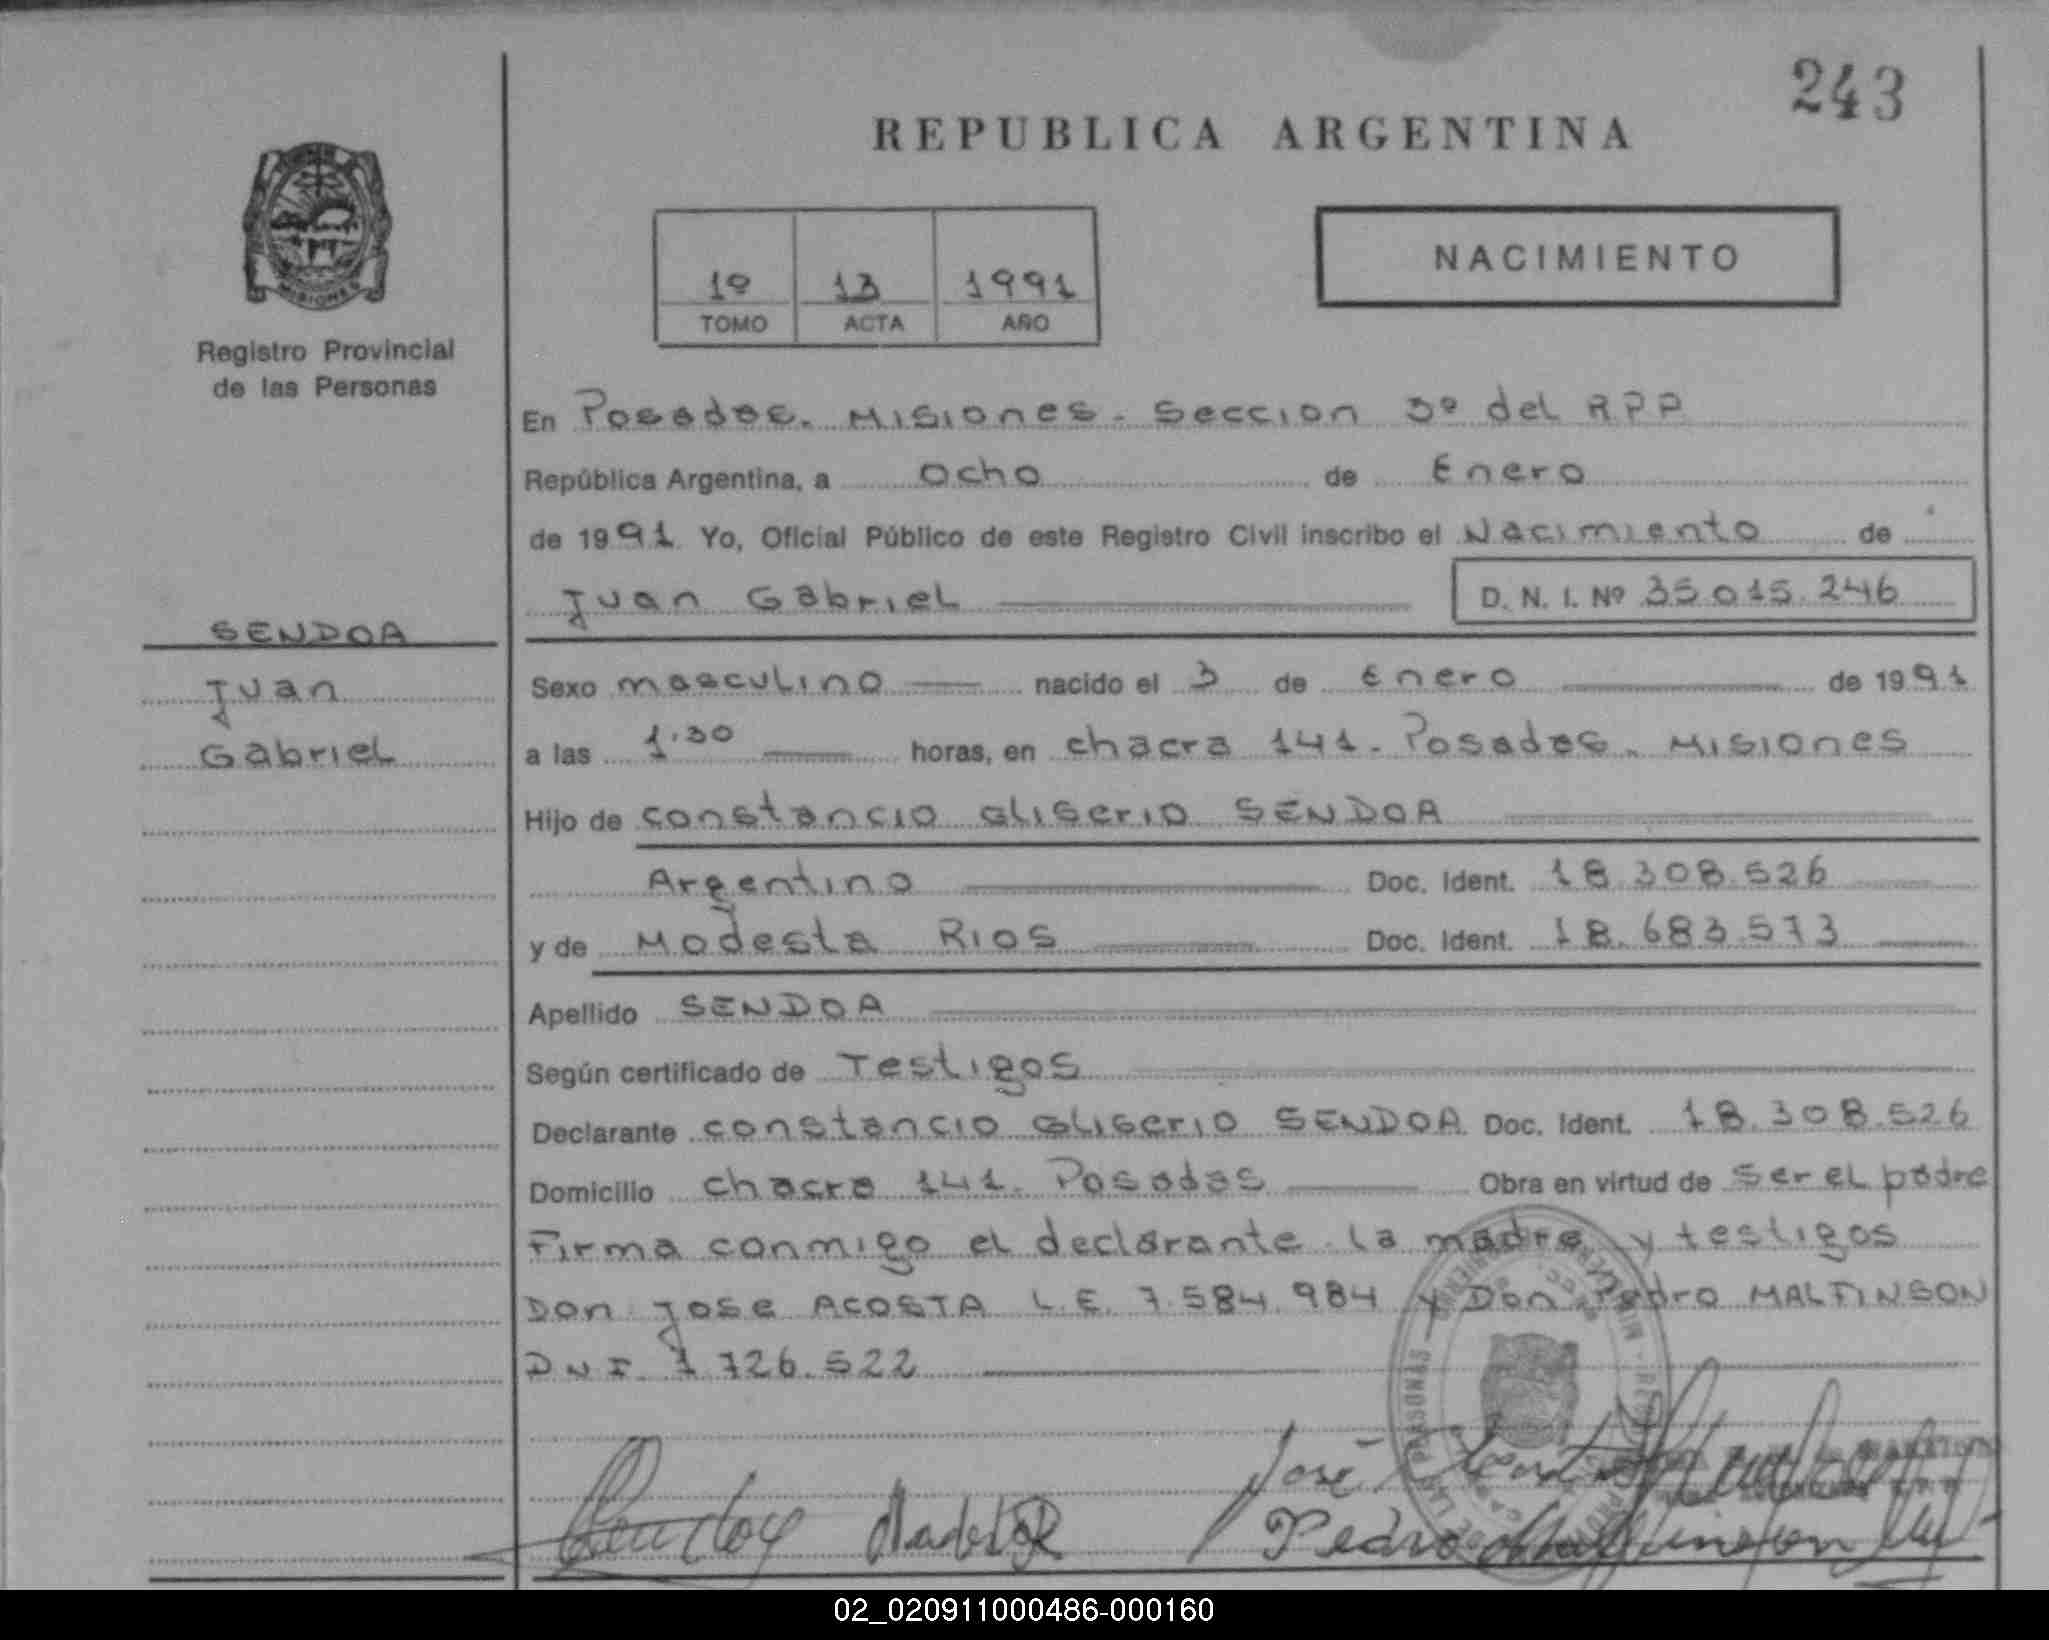 243
REPUBLICA ARGENTINA
1º 13 1991
TOMO ACTA AÑO
NACIMIENTO
MISIONES
Registro Provincial
de las Personas
En Posadas. Misiones. Seccion 3º del R.P.P.
República Argentina, a ocho de Enero
de 1991 Yo, Oficial Público de este Registro Civil inscribo el Nacimiento de
Juan Gabriel D. N. I. Nº 35.015.246
SENDOA
Juan
Gabriel
Sexo masculino nacido el 3 de Enero de 1991
a las 1.30 horas, en chacra 141. Posadas. Misiones
Hijo de Constancio Gliserio SENDOA
Argentino Doc. Ident. 18.308.526
y de Modesta RIOS Doc. Ident. 18.683.573
Apellido SENDOA
Según certificado de Testigos
Declarante Constancio Gliserio SENDOA Doc. Ident. 18.308.526
Domicilio chacra 141. Posadas Obra en virtud de ser el padre
Firma conmigo el declarante la madre y testigos
Don Jose ACOSTA L.E. 7.584.984 y Don Pedro MALFINSON
DNI. 1.726.522
José
Pedro
02_020911000486-000160